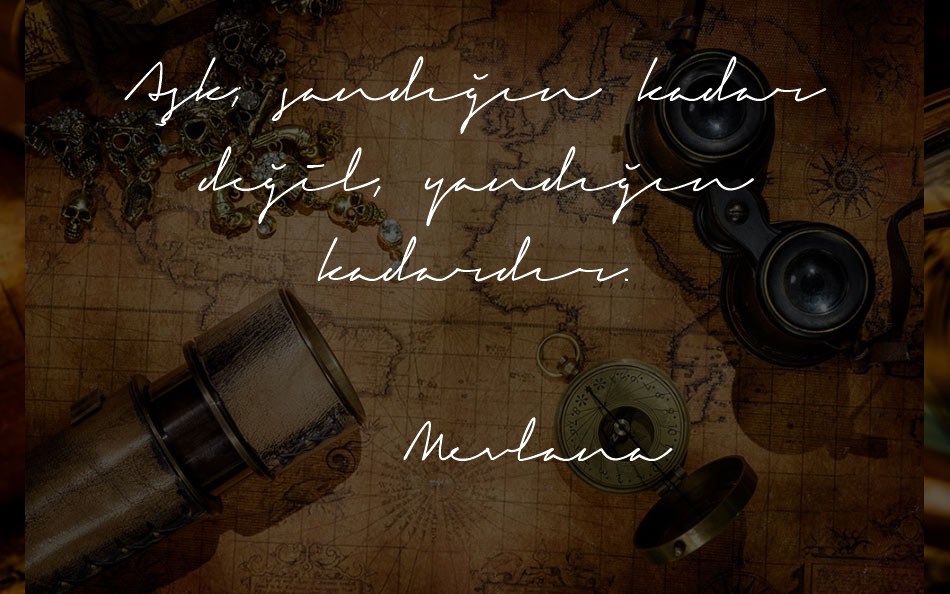 Aşk, sandığın kadar
değil, yandığın
kadardır.
Mevlana